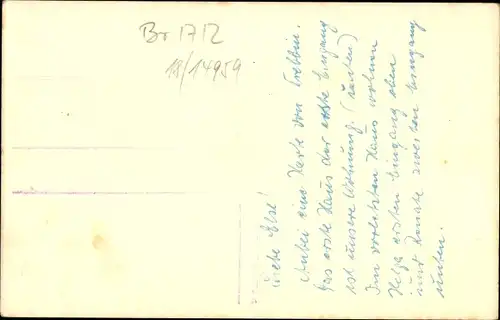 Br 1712
18/14959
Liebe Else!
Anbei eine Karte von Trebbin.
Das erste Haus der erste Eingang
ist unsere Wohnung. (unten)
Im vorletzten Haus wohnen
Helga ersten Eingang oben
und Renate zweiten Eingang
unten.